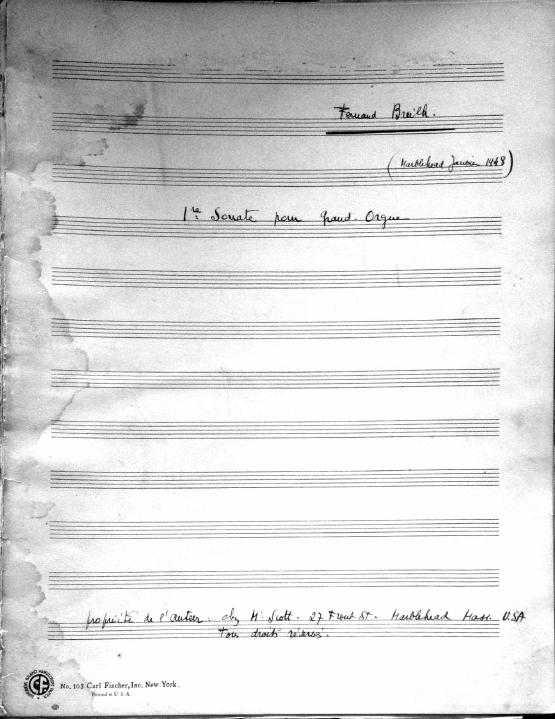 Fernand Breilh.
(Marblehead Janvier 1948)
1re Sonate pour Grand-Orgue
propriété de l'auteur. chez Mr Scott - 27 Front St. Marblehead Mass. U.SA
Tous droits réservés.
No. 103 Carl Fischer, Inc. New York.
Printed in U.S.A.